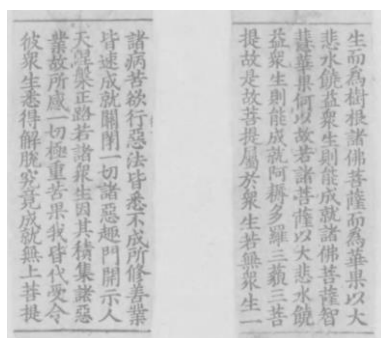 生而為樹根諸佛菩薩而為華果以大
悲水饒益衆生則能成就諸佛菩薩智
慧華果何以故若諸菩薩以大悲水饒
益衆生則能成就阿耨多羅三藐三菩
提故是故菩提屬於衆生若無衆生一
諸病苦欲行惡法皆悉不成所修善業
皆速成就關閉一切諸惡趣門開示人
天涅槃正路若諸衆生因其積集諸惡
業故所感一切極重苦果我皆代受令
彼衆生悉得解脫究竟成就無上菩提